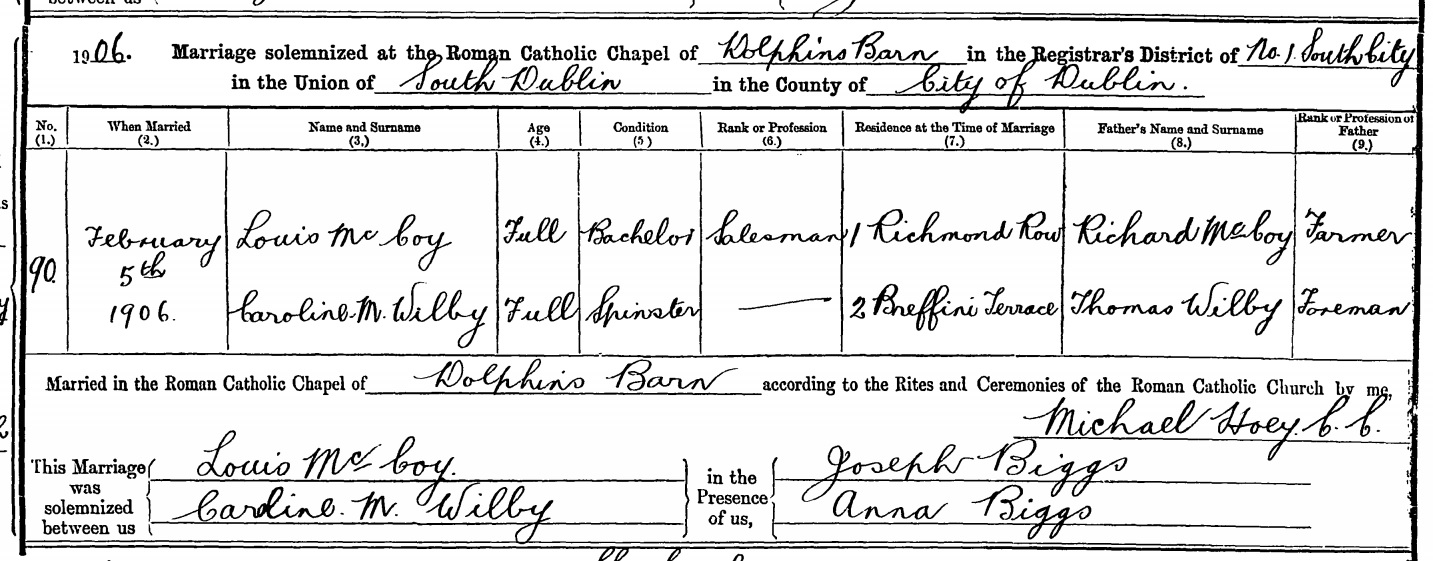 1906. Marriage solemnized at the Roman Catholic Chapel of Dolphins Barn in the Registrar's District of No. 1 South City
in the Union of South Dublin in the County of City of Dublin.
No. (1.) When Married (2.) Name and Surname (3,) Age (4.) Condition (5) Rank or Profession (6.) Residence at the Time of Marriage (7.) Father's Name and Surname (8.) Rank or Profession of Father (9.)
90. February 5th 1906.
Louis Mc Coy Full Bachelor Salesman 1 Richmond Row Richard McCoy Farmer
Caroline. M. Wilby Full Spinster — 2 Breffini Terrace Thomas Wilby Foreman
Married in the Roman Catholic Chapel of Dolphins Barn according to the Rites and Ceremonies of the Roman Catholic Church by me,
Michael Hoey. C. C.
This Marriage was solemnized between us
Louis Mc Coy.
Caroline. M. Wilby
in the Presence of us,
Joseph Biggs
Anna Biggs